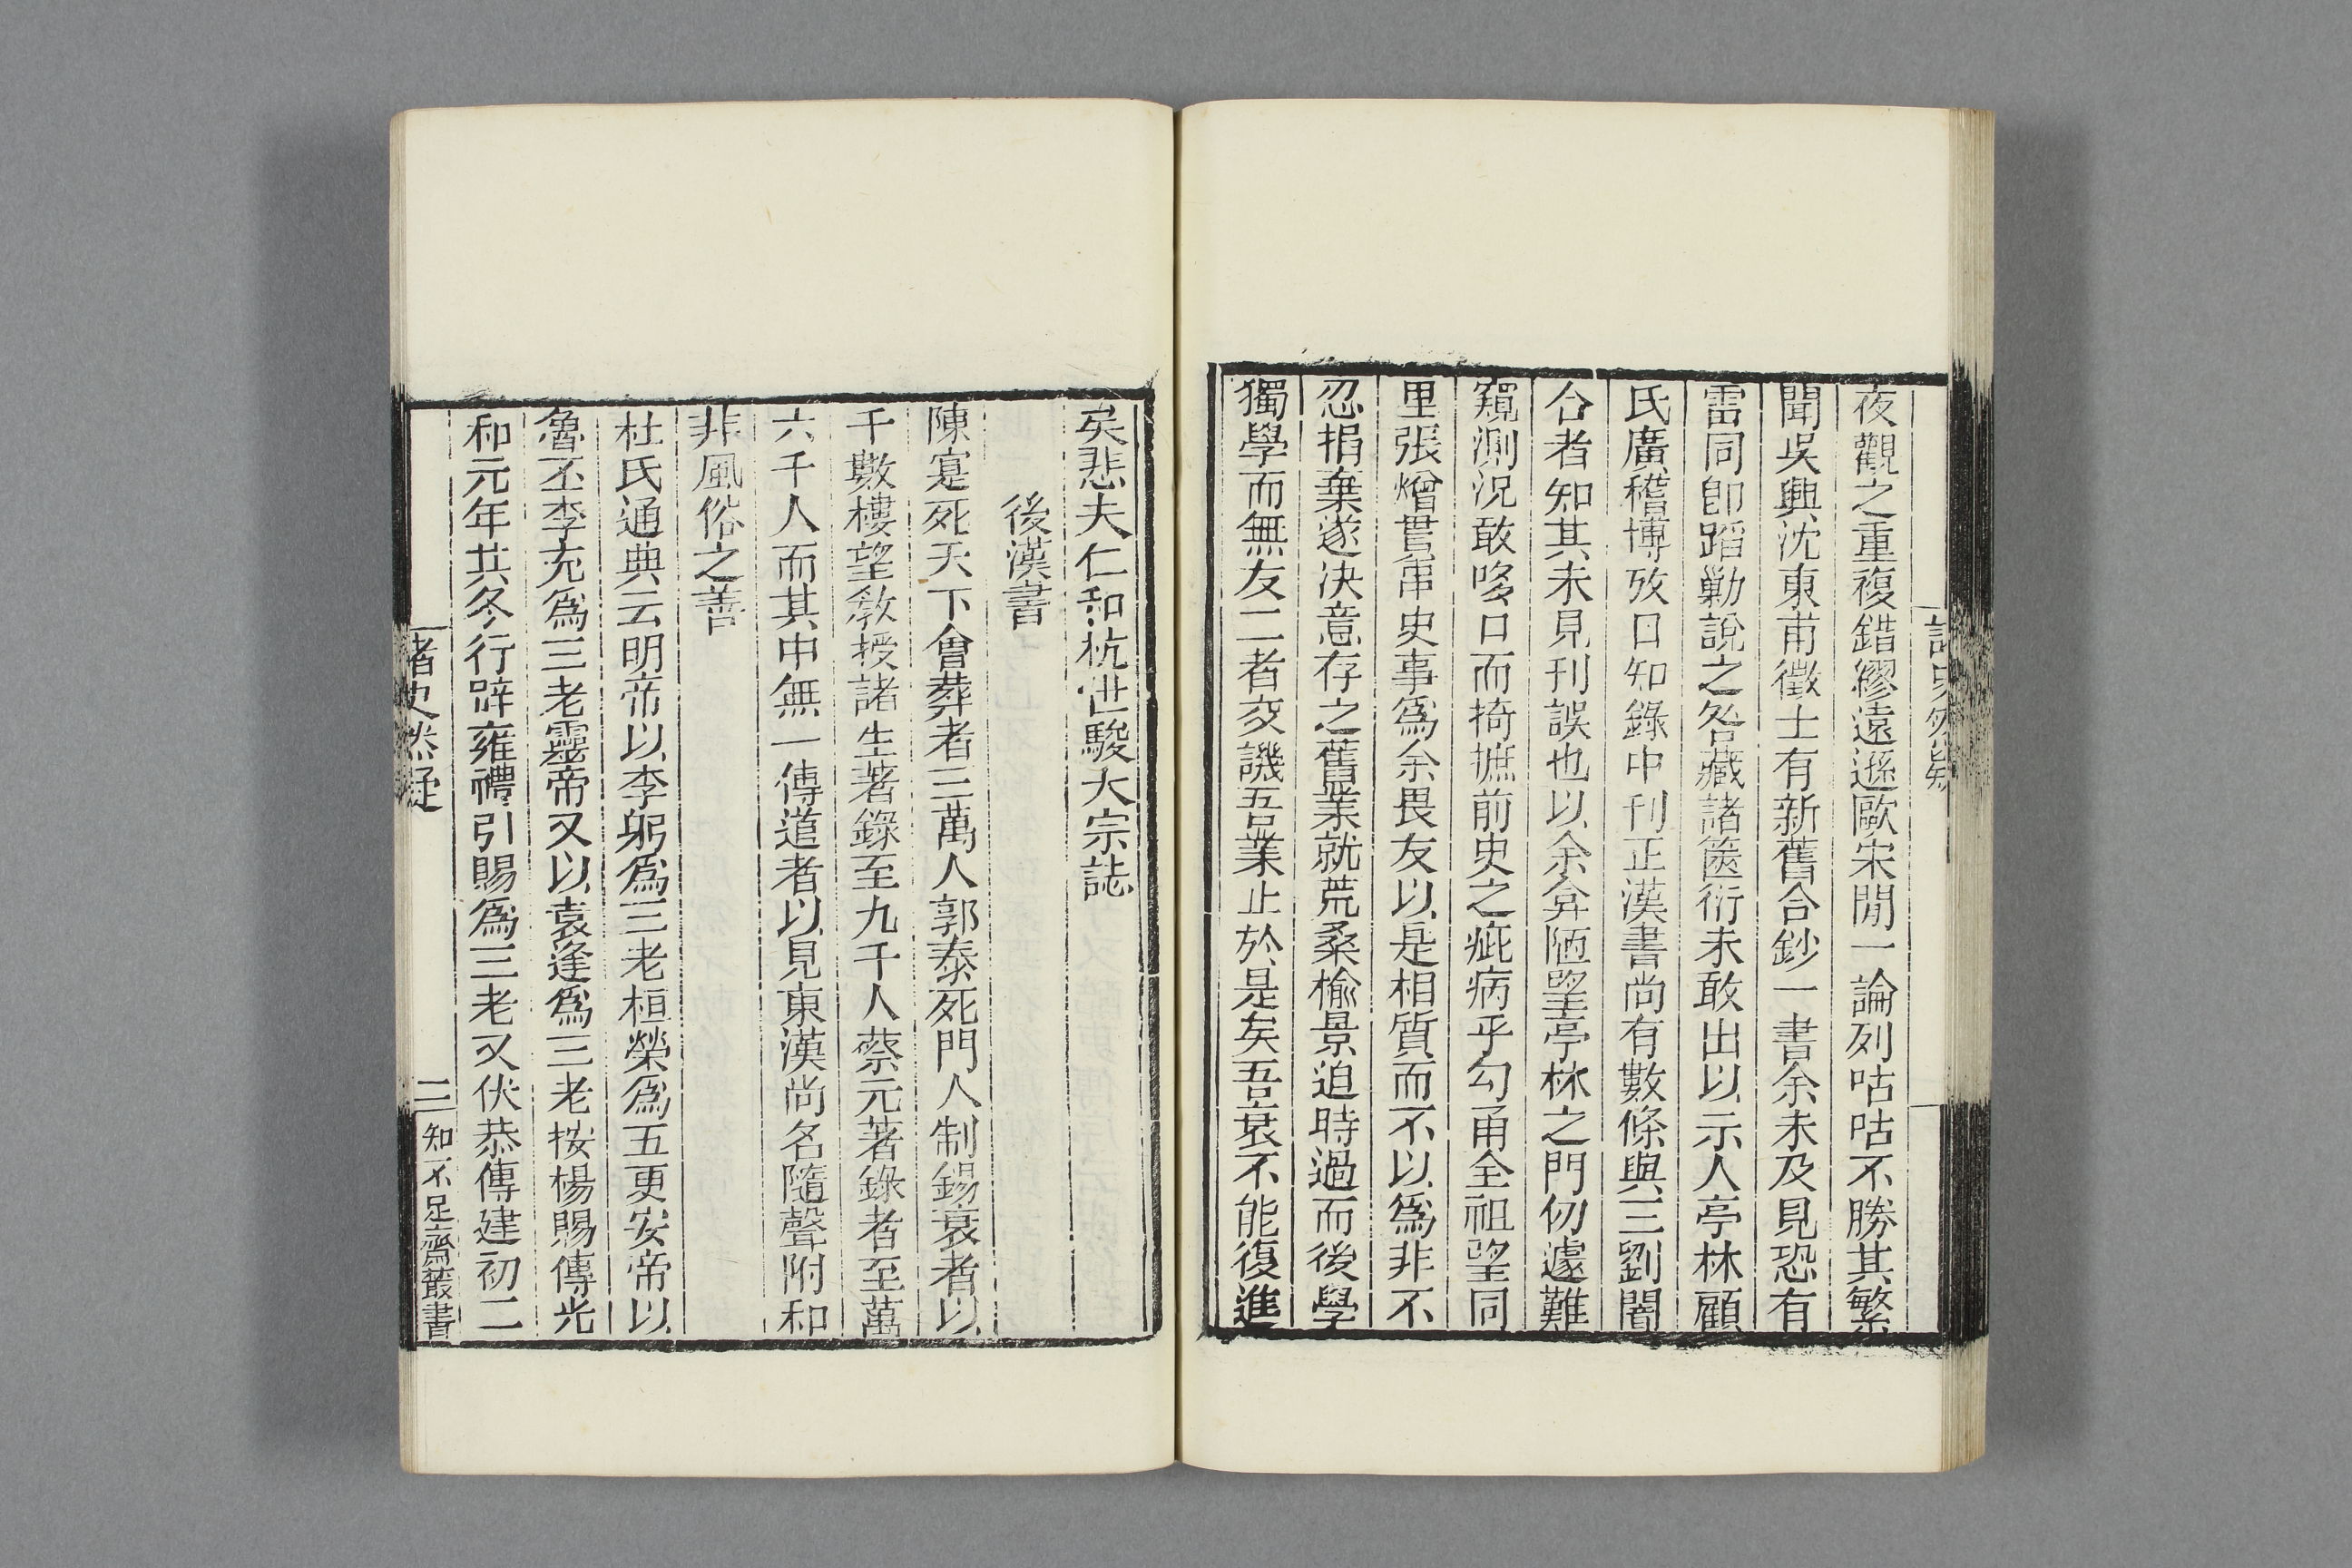 夜觀之重複錯繆遠遜歐宋閒一論列呫呫不勝其繁
聞吳興沈東甫徵士有新舊合鈔一書余未及見恐有
雷同卽蹈勦說之咎藏諸篋衍未敢出以示人亭林顧
氏廣稽博攷日知錄中刊正漢書尚有數條與三劉闇
合者知其未見刊誤也以余弇陋望亭林之門仞遽難
窺測況敢哆口而掎摭前史之疵病乎勾甬全祖望同
里張熷貫串史事爲余畏友以是相質而不以爲非不
忍捐棄遂決意存之舊業就荒桑榆景迫時過而後學
獨學而無友二者交譏吾業止於是矣吾衰不能復進
矣悲夫仁和杭世駿大宗誌
後漢書
陳寔死天下會葬者三萬人郭泰死門人制錫衰者以
千數樓望敎授諸生著錄至九千人蔡元著錄者至萬
六千人而其中無一傳道者以見東漢尚名隨聲附和
非風俗之善
杜氏通典云明帝以李躬爲三老桓榮爲五更安帝以
魯丕李充爲三老靈帝又以袁逢爲三老按楊賜傳光
和元年共冬行辟雍禮引賜爲三老又伏恭傳建初二
諸史然疑
三
知不足齋叢書